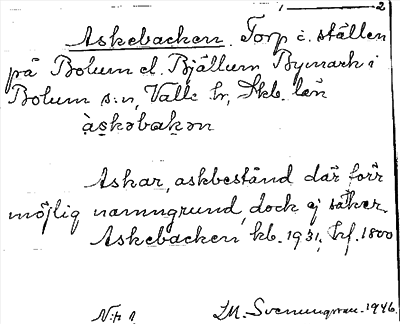 1 — 2
Askebacken. Torp o. ställen
på Bolum el. Bjällum Bymark i
Bolum s:n, Valle hr, Skb. län
àskəbakən
Askar, askbestånd där förr
möjlig namngrund, dock ej säker.
Askebacken kb. 1931, hf. 1800
N:r 1 M. Svenungsson. 1946.